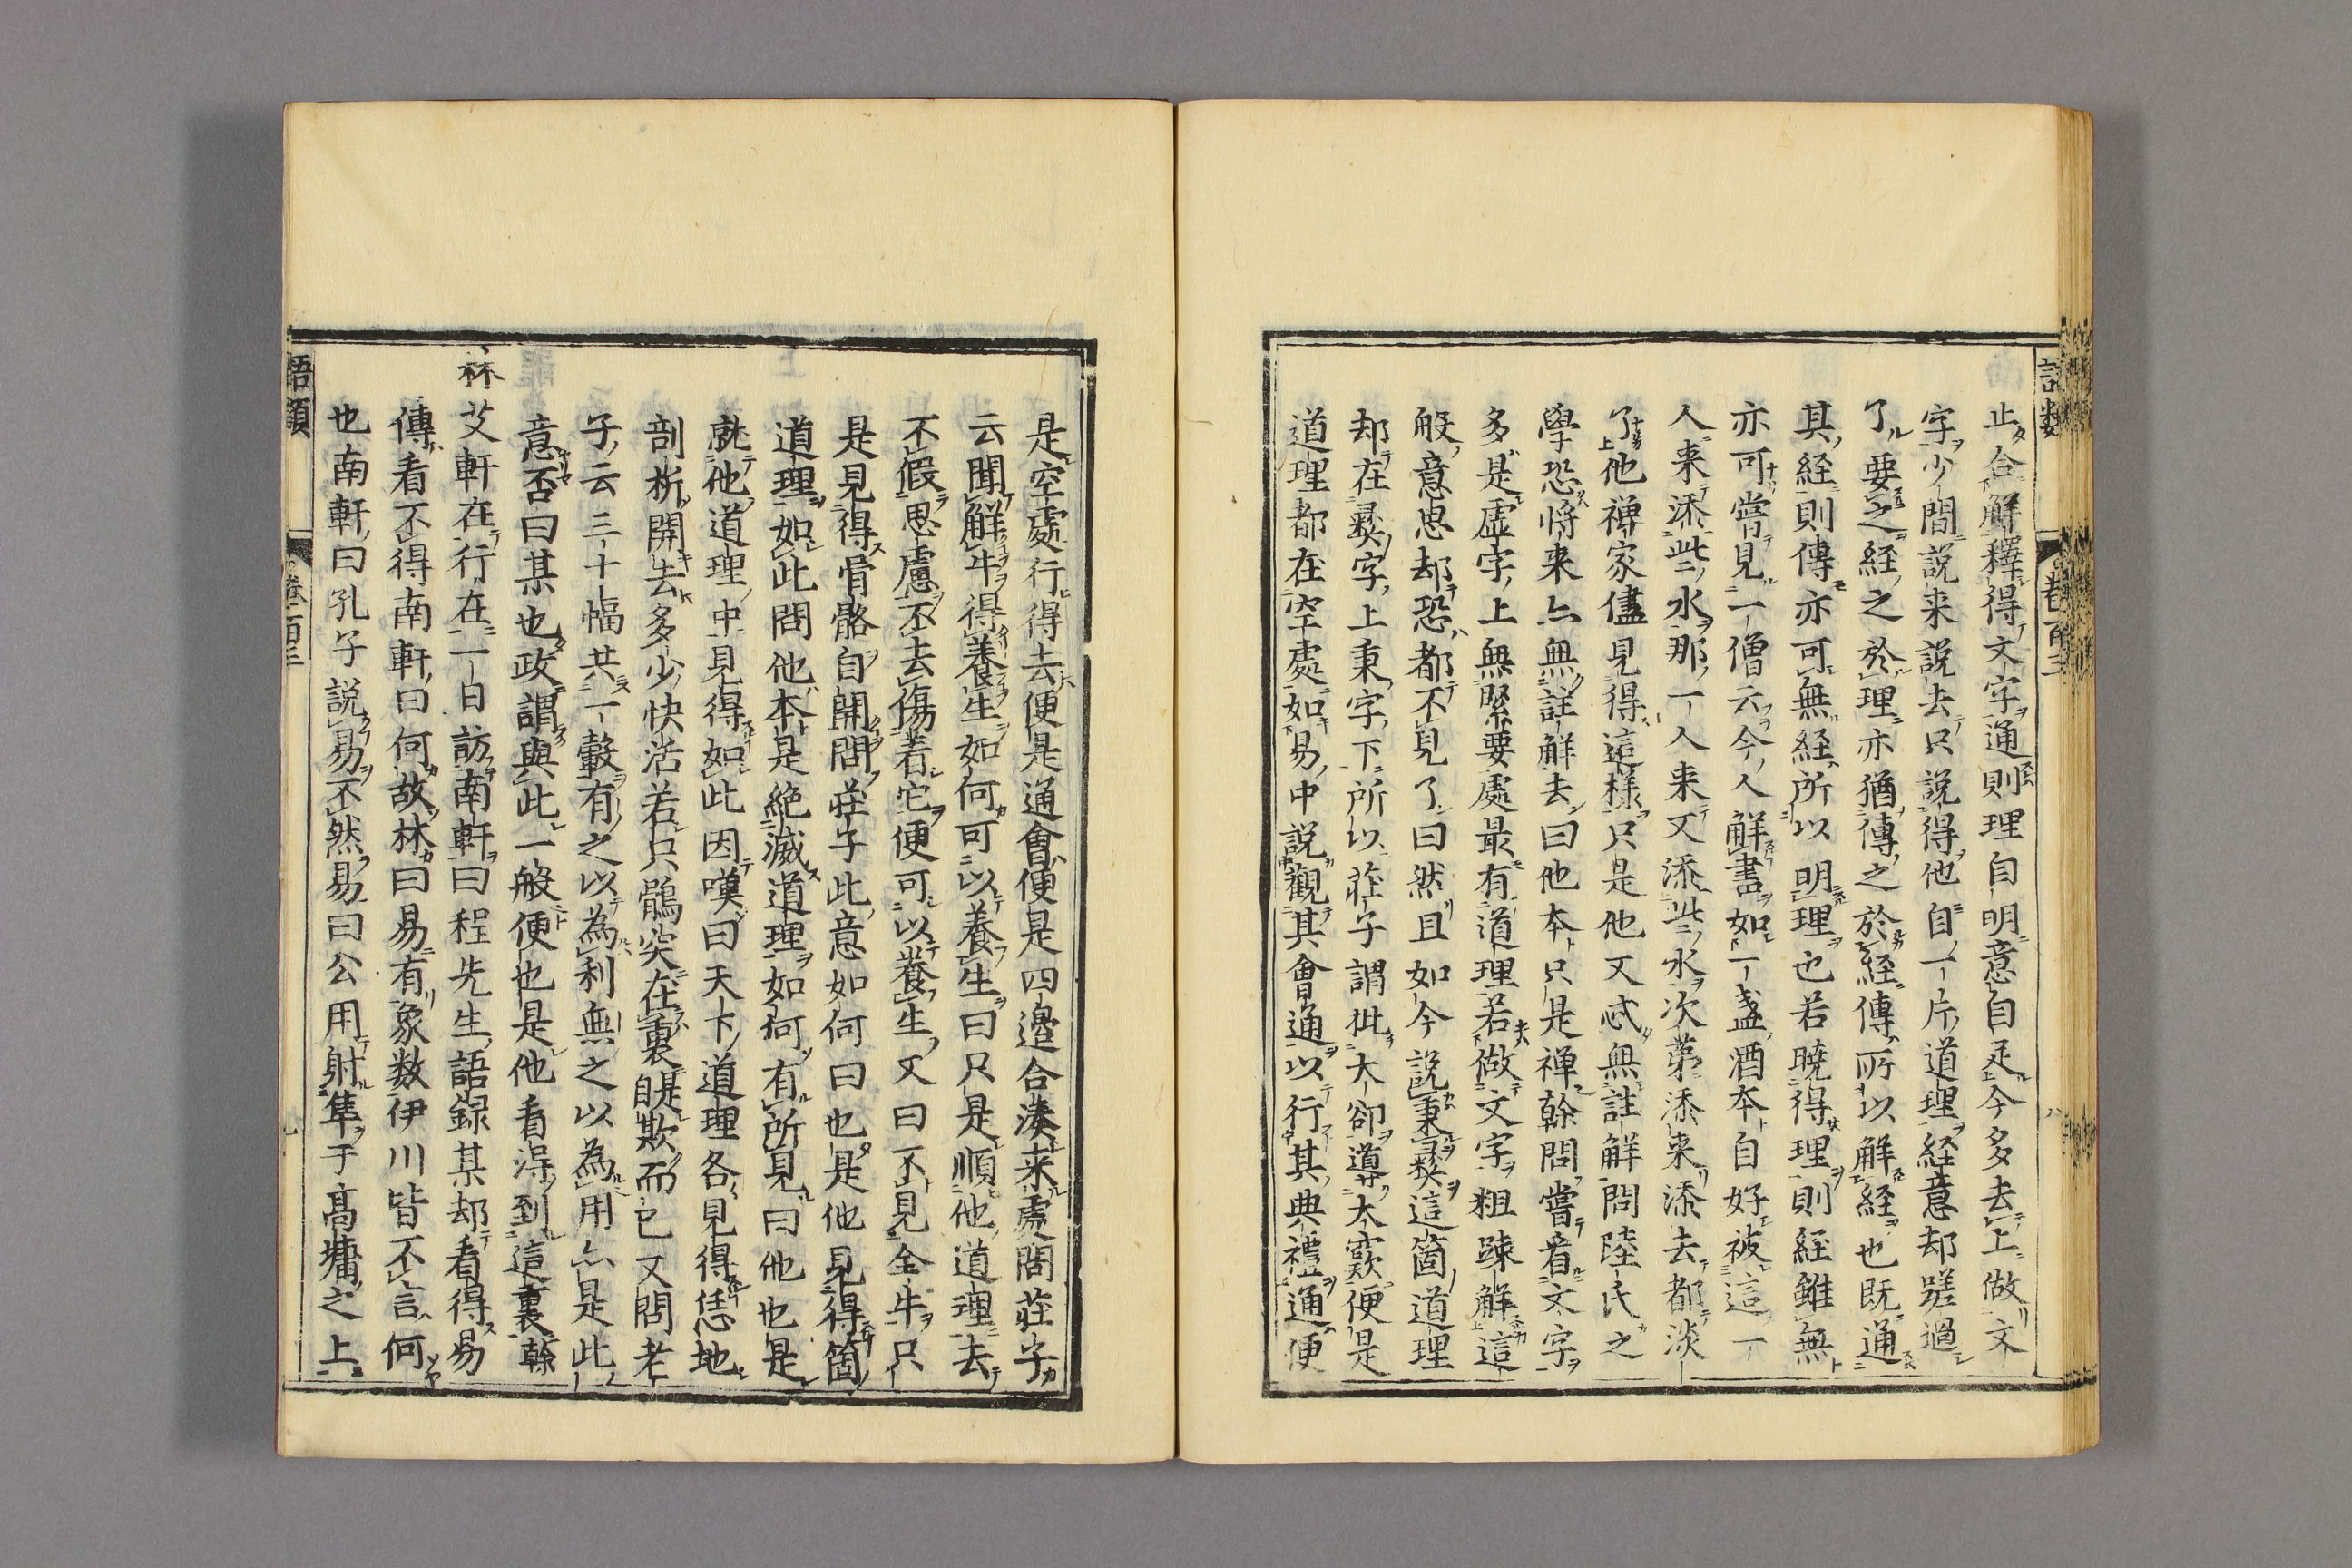 語類
卷百三
止合解釋得文字通則理自明意自足今多去上做文
字少間說来說去只說得他自一片道理経意却蹉過
了要之経之於理亦猶傳之於経傳所以解経也既通
其経則傳亦可無経所以明理也若曉得理則経雖無
亦可嘗見一僧云今人解書如一盞酒本自好被這一
人来添些水那一人来又添些水次第添来添去都淡
了他禅家儘見得這様只是他又忒無註解問陸氏之
學恐將来亦無註解去曰他本只是禅幹問嘗看文字
多是虚字上無緊要處最有道理若做文字粗踈解這
般意思却恐都不見了曰然且如今說秉彛這箇道理
却在彛字上秉字下所以莊子謂批大卻導大窾便是
道理都在空處如易中說觀其會通以行其典禮通便
是空處行得去便是通會便是四邊合湊来處問莊子
云聞解牛得養生如何可以養生曰只是順他道理去
不假思慮不去傷着它便可以養生又曰不見全牛只
是見得骨骼自開問莊子此意如何曰也是他見得箇
道理如此問他本是絶滅道理如何有所見曰他也是
就他道理中見得如此因嘆曰天下道理各見得恁地
剖析開去多少快活若只鶻突在裏是自欺而已又問老
子云三十幅共一轂有之以為利無之以為用亦是此
意否曰某也政謂與此一般便也是他看得到這裏幹
艾軒在行在一日訪南軒曰程先生語録某却看得易
林
傳看不得南軒曰何故林曰易有象数伊川皆不言何
也南軒曰孔子說易不然易曰公用射隼于髙墉之上
語類
卷一百三